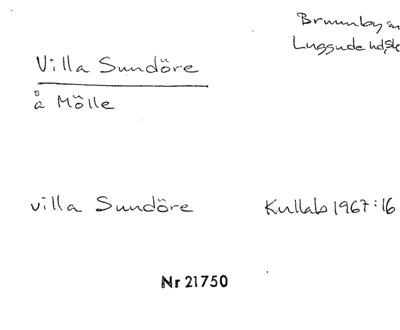 Brunnby sn
Luggude hd, Sk
Villa Sundöre
å Mölle
villa Sundöre Kullab 1967:16
Nr 21750